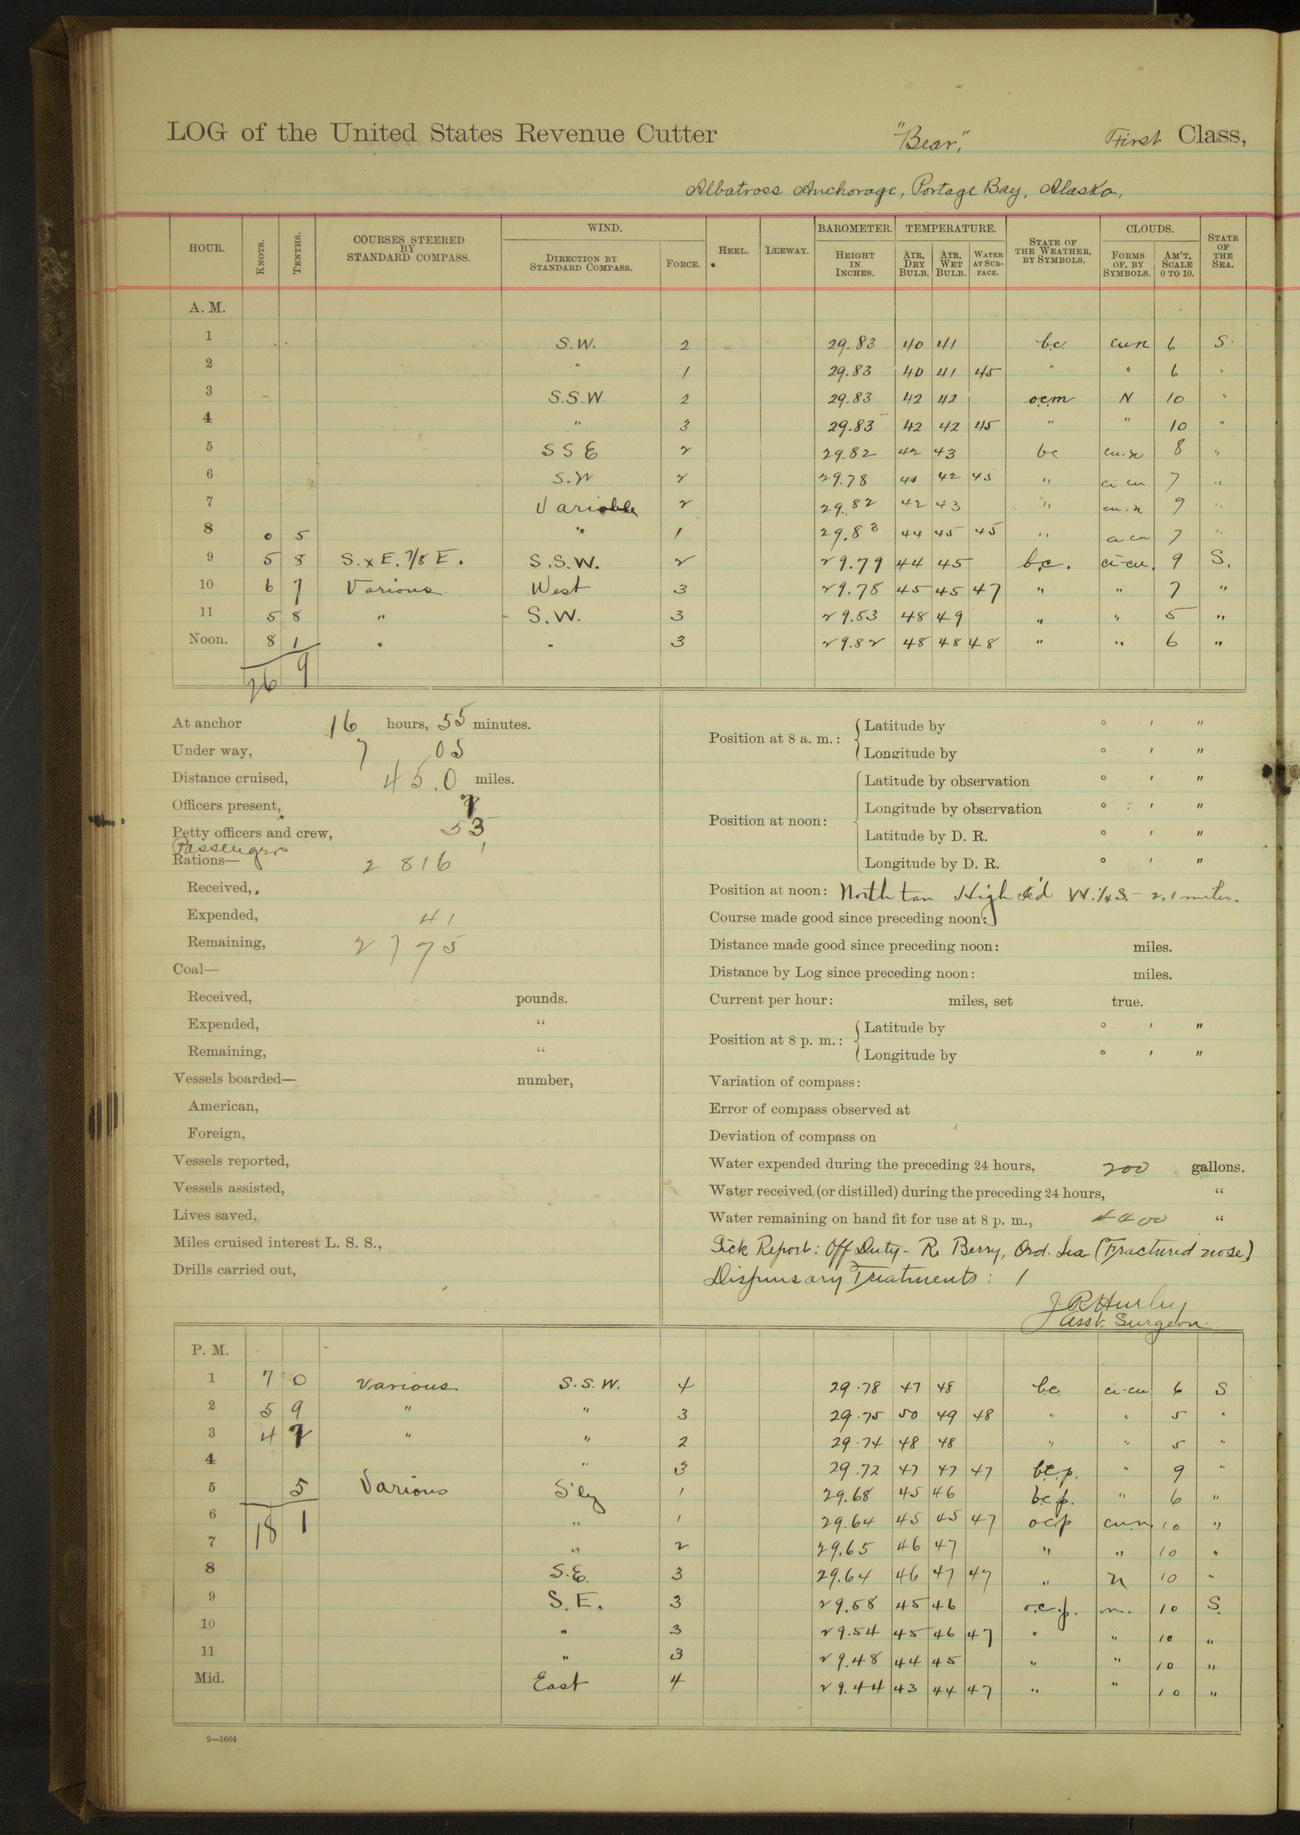 LOG of the United States Revenue Cutter "Bear," First Class,
Albatross Anchorage, Portage Bay, Alaska,
HOUR. KNOTS. TENTHS. COURSES STEERED BY STANDARD COMPASS. WIND. DIRECTION BY STANDARD COMPASS. FORCE. HEEL. LEEWAY. BAROMETER. HEIGHT IN INCHES. TEMPERATURE. AIR, DRY BULB. AIR, WET BULB. WATER AT SURFACE. STATE OF THE WEATHER, BY SYMBOLS. CLOUDS. FORMS OF, BY SYMBOLS. AM'T, SCALE 0 TO 10. STATE OF THE SEA.
A. M.
1 S.W. 2 29.83 40 41 bc cu.n 6 S
2 " 1 29.83 40 41 45 " " 6 "
3 S.S.W. 2 29.83 42 42 ocm N 10 "
4 " 3 29.83 42 42 45 " " 10 "
5 SSE 2 29.82 42 43 bc cu.n 8 "
6 S.W 2 29.78 42 45 " ci cu 7 "
7 Variable 2 29.82 42 43 " cu.n 9 "
8 0 5 " 1 29.83 44 45 45 " ci cu 7 "
9 5 8 S.xE.7/8 E. S.S.W. 2 29.79 44 45 b.c. ci-cu. 9 S.
10 6 7 Various West 3 29.78 45 45 47 " " 7 "
11 5 8 " S.W. 3 29.83 48 49 " " 5 "
Noon. 8 1 " " 3 29.82 48 48 48 " " 6 "
26 9
At anchor 16 hours, 55 minutes.
Under way, 7 05
Distance cruised, 45.0 miles.
Officers present,
Petty officers and crew, 53
Passengers 1
Rations— 2816
Received,
Expended, 41
Remaining, 2775
Coal—
Received, pounds.
Expended, "
Remaining, "
Vessels boarded— number,
American,
Foreign,
Vessels reported,
Vessels assisted,
Lives saved,
Miles cruised interest L. S. S.,
Drills carried out,
Position at 8 a. m.: Latitude by ° ' "
Longitude by ° ' "
Position at noon: Latitude by observation ° ' "
Longitude by observation ° ' "
Latitude by D. R. ° ' "
Longitude by D. R. ° ' "
Position at noon: North tan High Is'd W.1/4S.- 2.1 miles.
Course made good since preceding noon:
Distance made good since preceding noon: miles.
Distance by Log since preceding noon: miles.
Current per hour: miles, set true.
Position at 8 p. m.: Latitude by ° ' "
Longitude by ° ' "
Variation of compass:
Error of compass observed at
Deviation of compass on
Water expended during the preceding 24 hours, 200 gallons.
Water received (or distilled) during the preceding 24 hours, "
Water remaining on hand fit for use at 8 p. m., 4400 "
Sick Report: Off Duty- R. Berry, Ord. Sea (Fractured nose)
Dispensary Treatments: 1
J. R. Hurley
Asst. Surgeon
P. M.
1 7 0 Various S.S.W. 4 29.78 47 48 bc ci-cu 6 S
2 5 9 " " 3 29.75 50 49 48 " " 5 "
3 4 7 " " 2 29.74 48 48 " " 5 "
4 " 3 29.72 47 47 47 b.c.p. " 9 "
5 5 Various S'ly 1 29.68 45 46 bcp. " 6 "
6 " 1 29.64 45 45 47 ocp cu.n 10 "
7 " 2 29.65 46 47 " " 10 "
8 S.E. 3 29.64 46 47 47 " n 10 "
9 S.E. 3 29.58 45 46 o.c.p. n. 10 S.
10 " 3 29.54 45 46 47 " " 10 "
11 " 3 29.48 44 45 " " 10 "
Mid. East 4 29.44 43 44 47 " " 10 "
18 1
2—1664